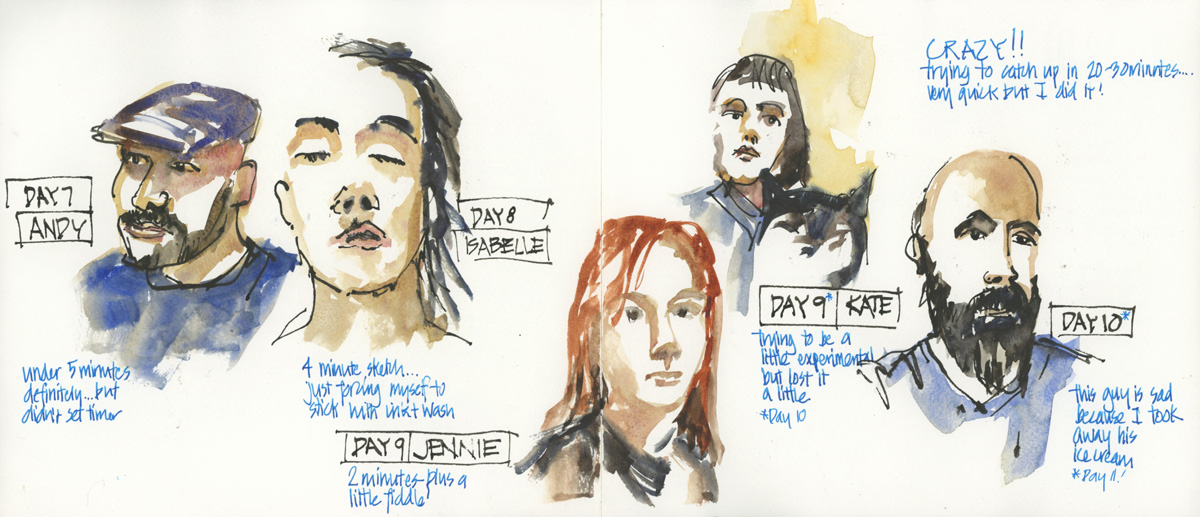 DAY 7
ANDY
under 5 minutes
definitely...but
didn't set timer
DAY 8
ISABELLE
4 minute sketch...
just forcing myself to
stick with ink + wash
DAY 9 JENNIE
2 minutes plus a
little fiddle
CRAZY!!
trying to catch up in 20-30 minutes....
very quick but I did it!
DAY 9* KATE
trying to be a
little experimental
but lost it
a little
*Day 10
DAY 10*
this guy is sad
because I took
away his
ice cream
*Day 11!